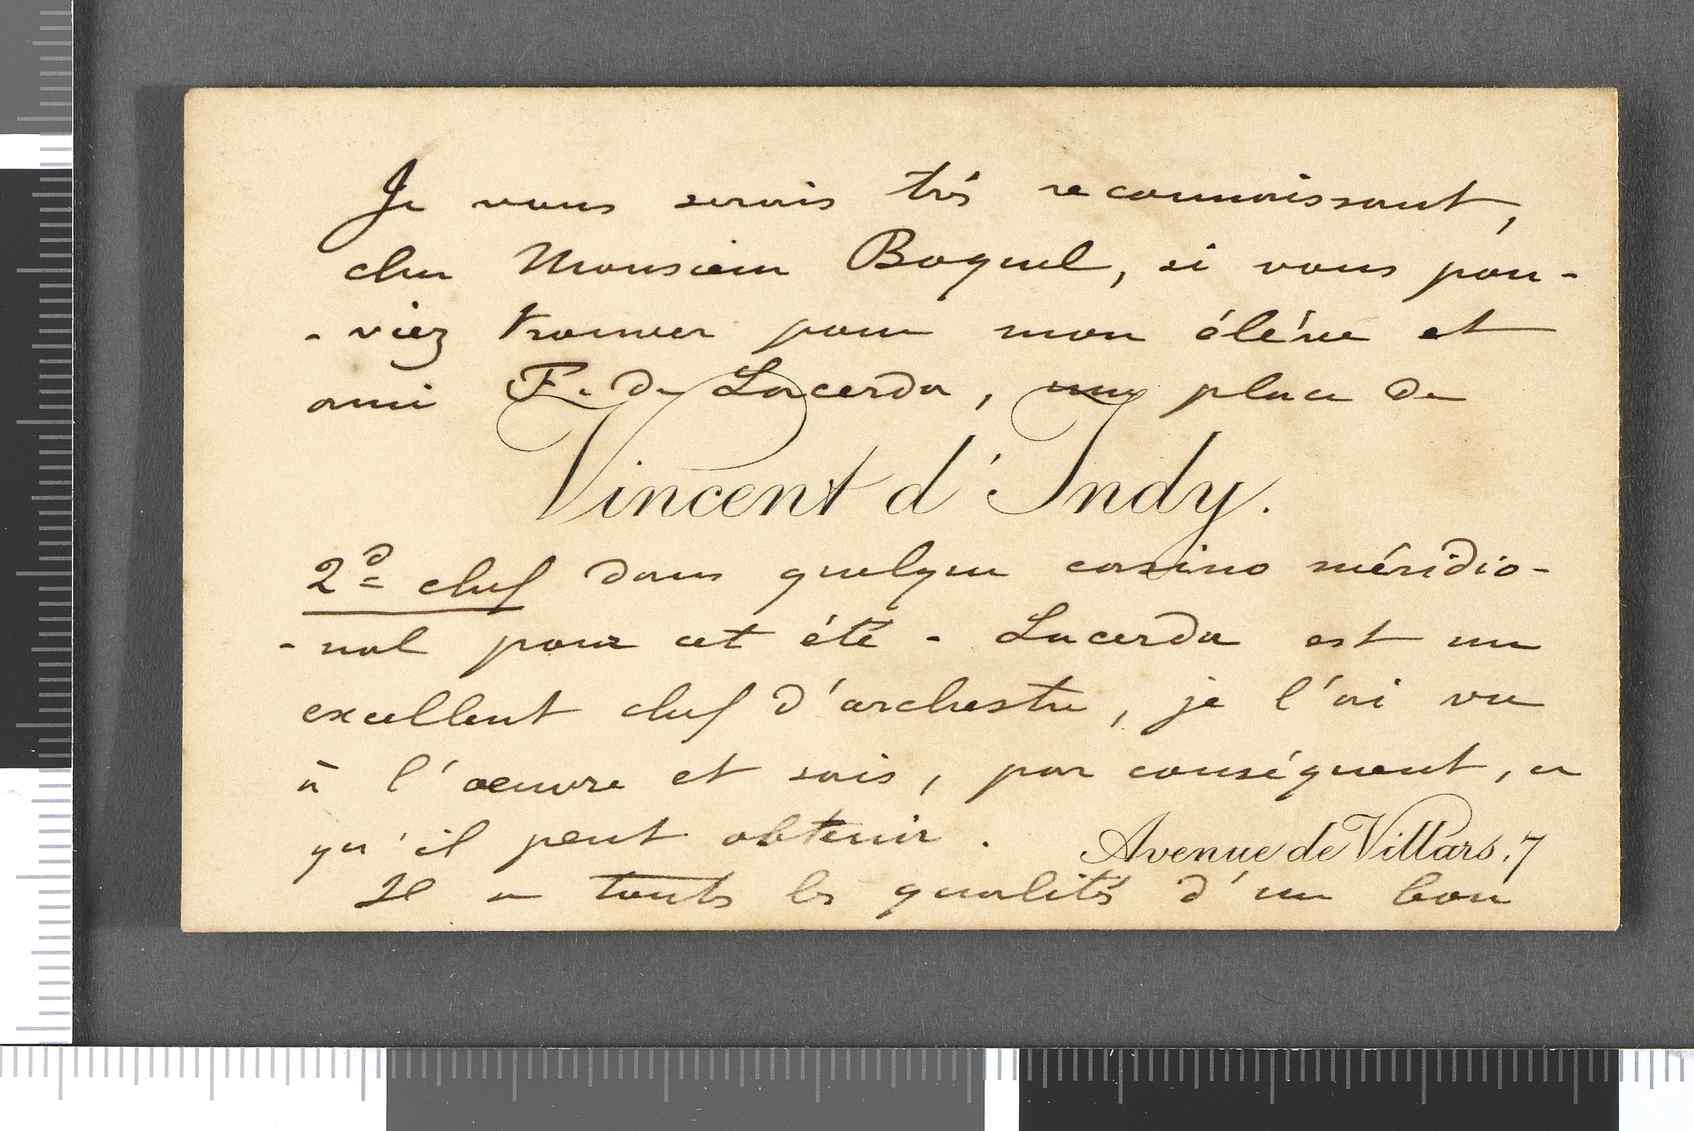 Je vous serais très reconnaissant,
cher Monsieur Boquel, si vous pou-
-viez trouver pour mon élève et
ami F. de Lacerda, une place de
Vincent d'Indy.
2d chef dans quelque casino méridio-
-nal pour cet été - Lacerda est un
excellent chef d'orchestre, je l'ai vu
à l'œuvre et sais, par conséquent, ce
qu'il peut obtenir.
Avenue de Villars, 7
Il a toutes les qualités d'un bon